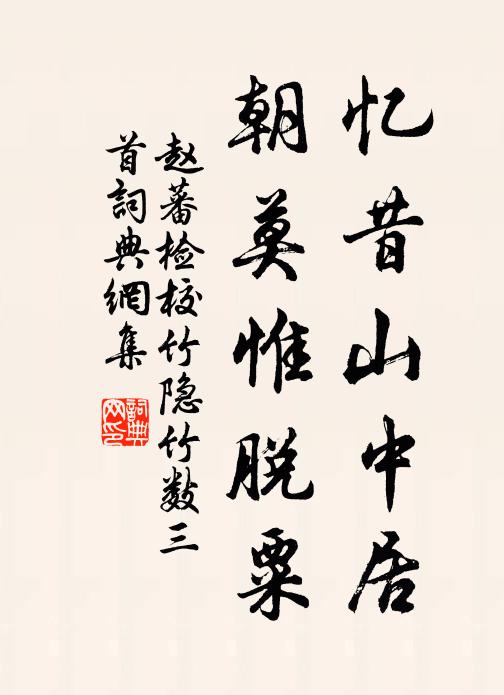 忆昔山中居
朝莫惟脱粟
赵蕃检校竹隐竹数三
首詞典網集
詞典
网印